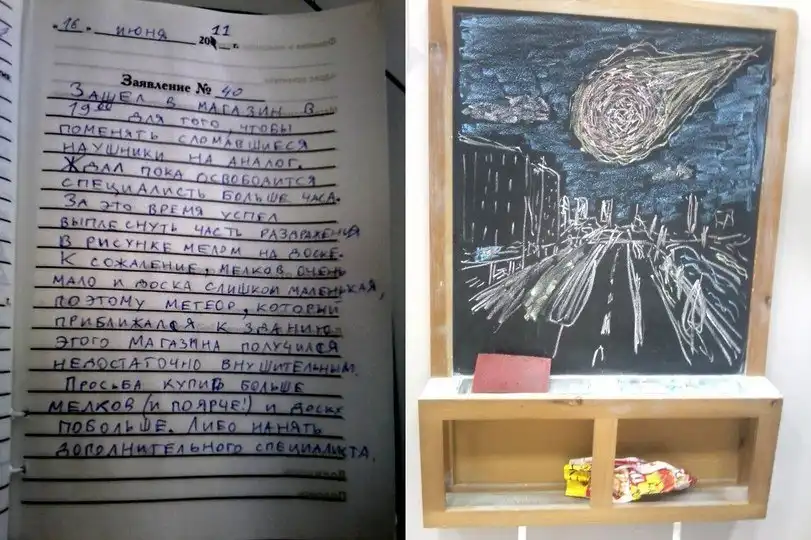 16 июня 2011 г.
Заявление № 40
ЗАШЕЛ В МАГАЗИН В
19:00 ДЛЯ ТОГО, ЧТОБЫ
ПОМЕНЯТЬ СЛОМАВШИЕСЯ
НАУШНИКИ НА АНАЛОГ.
ЖДАЛ ПОКА ОСВОБОДИТСЯ
СПЕЦИАЛИСТЬ БОЛЬШЕ ЧАСА.
ЗА ЭТО ВРЕМЯ УСПЕЛ
ВЫПЛЕСНУТЬ ЧАСТЬ РАЗДРАЖЕНИЯ
В РИСУНКЕ МЕЛОМ НА ДОСКЕ.
К СОЖАЛЕНИЕ, МЕЛКОВ ОЧЕНЬ
МАЛО И ДОСКА СЛИШКОМ МАЛЕНЬКАЯ,
ПОЭТОМУ МЕТЕОР, КОТОРЫЙ
ПРИБЛИЖАЛСЯ К ЗДАНИЮ
ЭТОГО МАГАЗИНА ПОЛУЧИЛСЯ
НЕДОСТАТОЧНО ВНУШИТЕЛЬНЫМ.
ПРОСЬБА КУПИТЬ БОЛЬШЕ
МЕЛКОВ (И ПОЯРЧЕ!) И ДОСКУ
ПОБОЛЬШЕ. ЛИБО НАНЯТЬ
ДОПОЛНИТЕЛЬНОГО СПЕЦИАЛИСТА.